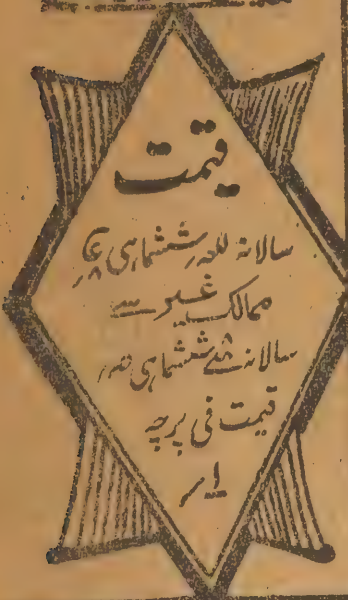 قیمت
سالانہ للعہ ششماہی
ممالک غیر سے
سالانہ ششماہی
قیمت فی پرچہ
۱ر